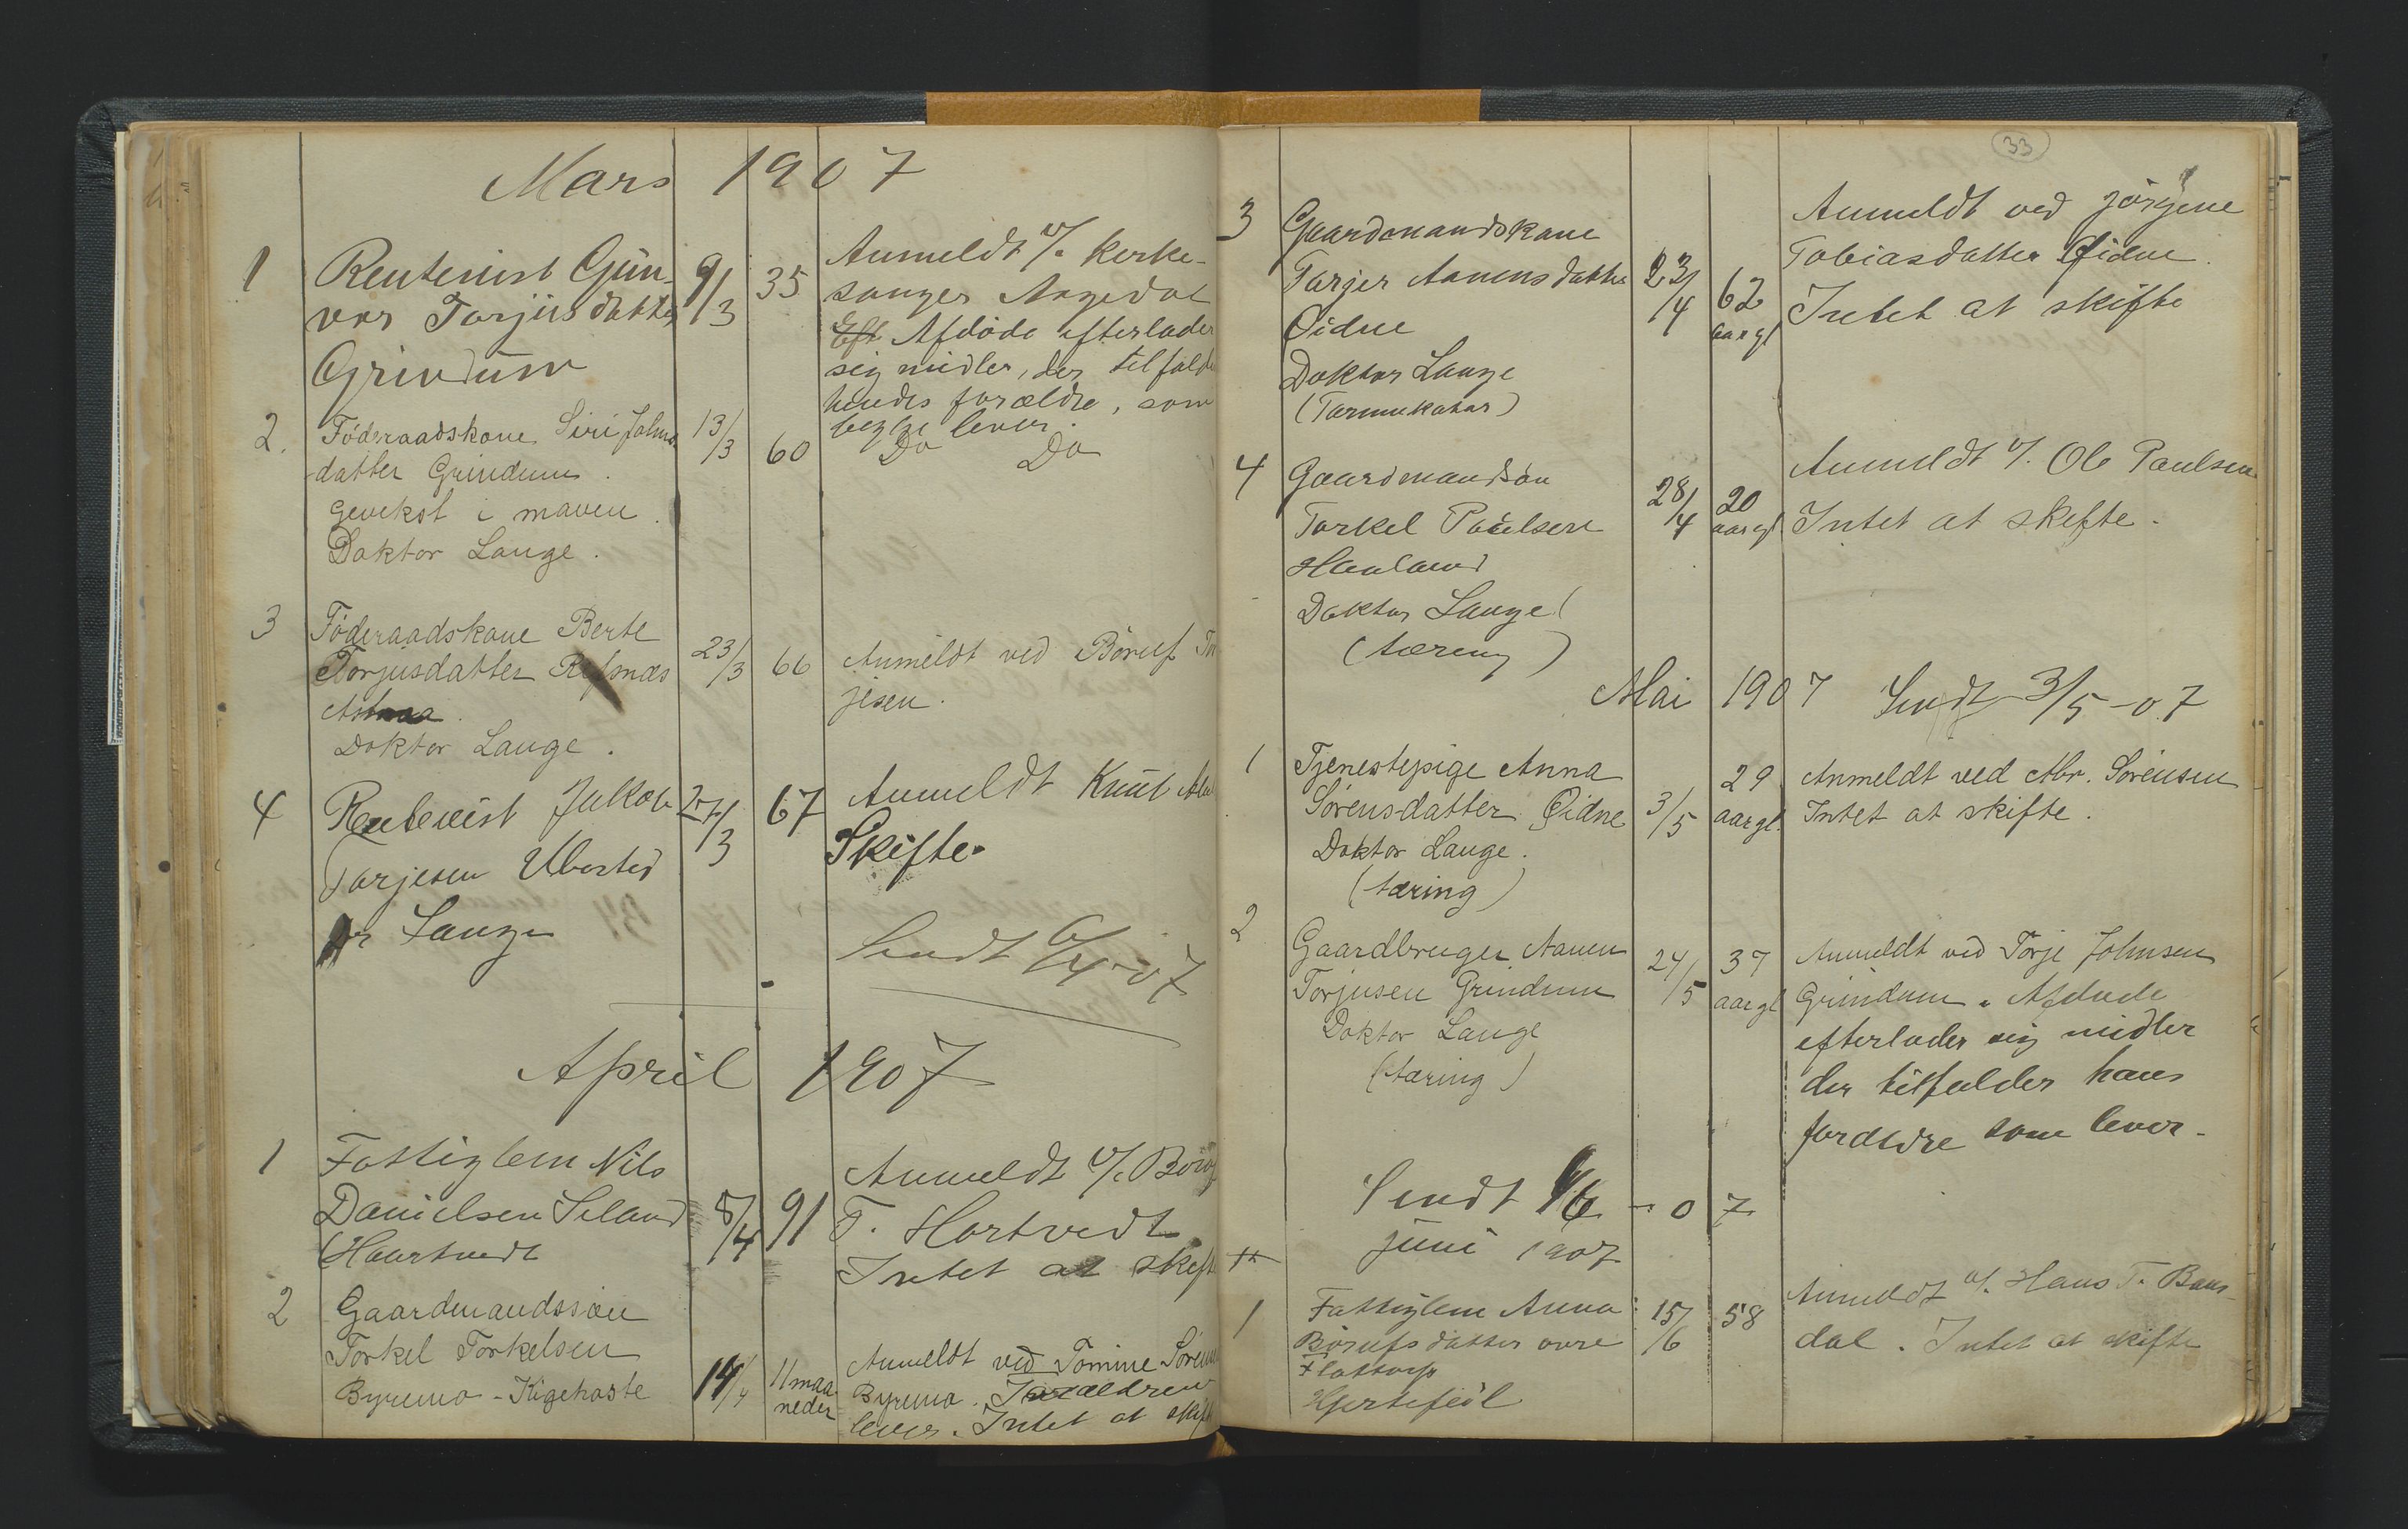 Mars 1907
1 Rentenist Gün-
vor Torjüsdatter
Grindüm
9/3 35
Anmeldt v/. Kirke-
sanger Aagedal
Eft Afdöde efterlader
sig midler, der tilfalde
hendes forældre, som
begge lever.
2. Föderaadskone Siri Johns
datter Grindum.
Gevekst i maven.
Doktor Lange.
13/3 60 Do Do
3 Föderaadskone Berte
Torjusdatter Refsnæs
Doktor Lange.
23/3 66 Anmeldt ved Börulf
jesen.
4 Rentenist Jakob
Tarjesen Ubosted
Dr Lange
27/3 67 Anmeldt Knut
Skifte.
Sendt 6/4-07
April 1907
1 Fattiglem Nils
Danielsen Seland
(Haartvedt
8/4 91
Anmeldt v/.
T. Hartvedt
Intet at skift
2 Gaardmandssön
Torkel Torkelsen
Byremo - Kigehoste
14/4 11 maa
neder
Anmeldt ved Tomine
Byremo. Forældrene
lever. Intet at skift
33
3 Gaardmandskone
Tarjer Aanensdatter
Øidne
Doktor Lange
(Tarmkatar)
23/4 62
aar gl
Anmeldt ved Jörgine
Tobiasdatter Øidne.
Intet at skifte
4 Gaardmandsön
Torkel Paulsen
Haaland
Doktor Lange
(tæring)
28/4 20
aar gl
Anmeldt v/. Ole Paulsen
Intet at skifte.
Mai 1907 Sendt 3/5-07
1 Tjenestepige Anna
Sörensdatter Øidne
Doktor Lange.
(tæring)
3/5 29
aar gl.
Anmeldt ved Abr. Sörensen
Intet at skifte.
2 Gaardbruger Aanen
Torjusen Grindum
Doktor Lange
(tæring)
24/5 37
aar gl
Anmeldt ved Torje Johnsen
Grindum. Afdøde
efterlader sig midler
der tilfalder hans
forældre som lever.
Sendt -07
Juni 1907
1 Fattiglem Anna
Börufsdatter övre
Flottorp
Hjertefeil
15/6 58
Anmeldt v/. Hans T. Baas-
dal. Intet at skifte